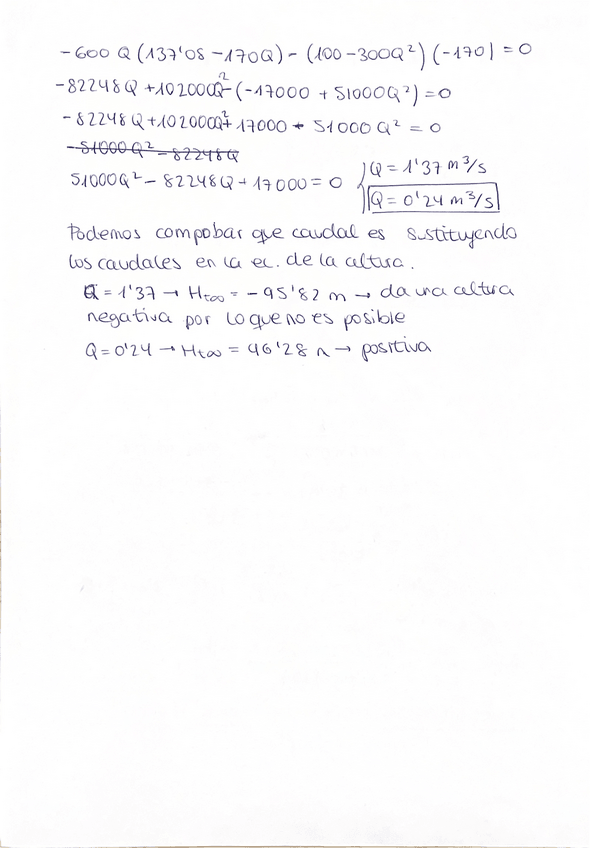 -600 Q (137'08 -170Q) - (100-300Q²) (-170) = 0
-82248Q +102000Q² - (-17000 + 51000Q²) = 0
-82248Q +102000Q² + 17000 - 51000 Q² = 0
-51000Q² - 82248Q
51000Q² - 82248Q + 17000 = 0 Q = 1'37 m³/s
Q = 0'24 m³/s
Podemos compobar que caudal es sustituyendo
los caudales en la ec. de la altura.
Q = 1'37 → H∞ = -95'82 m → da una altura
negativa por lo que no es posible
Q = 0'24 → H∞ = 96'28 m → positiva